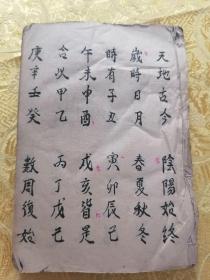 天地古今 陰陽始終
歲時日月 春夏秋冬
時有子丑 寅卯辰巳
午未申酉 戌亥皆是
合以甲乙 丙丁戊己
庚辛壬癸 數周復始